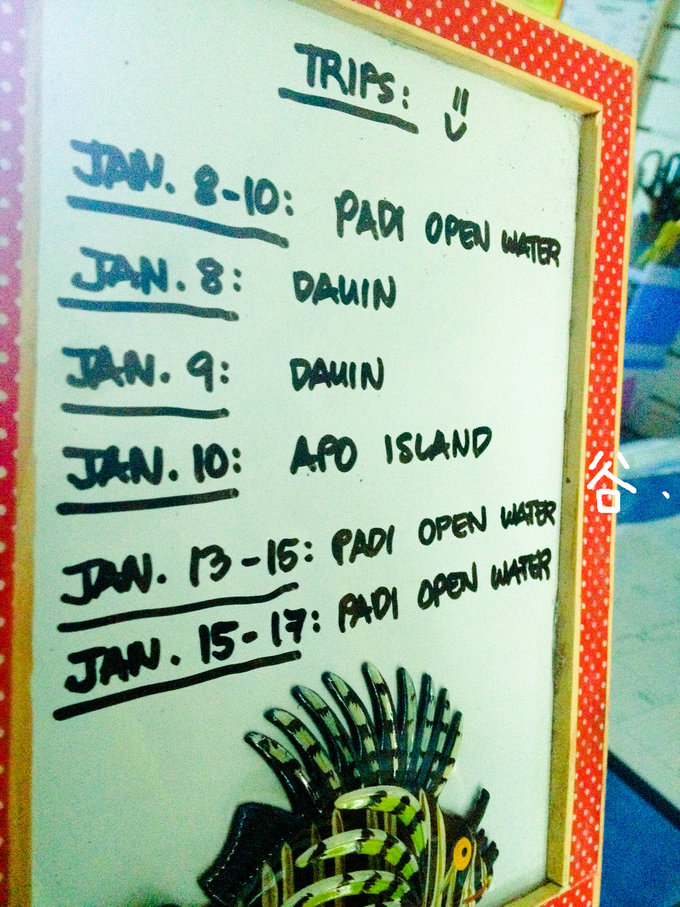 TRIPS:
JAN. 8-10: PADI OPEN WATER
JAN. 8: DAUIN
JAN. 9: DAUIN
JAN. 10: APO ISLAND
JAN. 13-15: PADI OPEN WATER
JAN. 15-17: PADI OPEN WATER
谷.